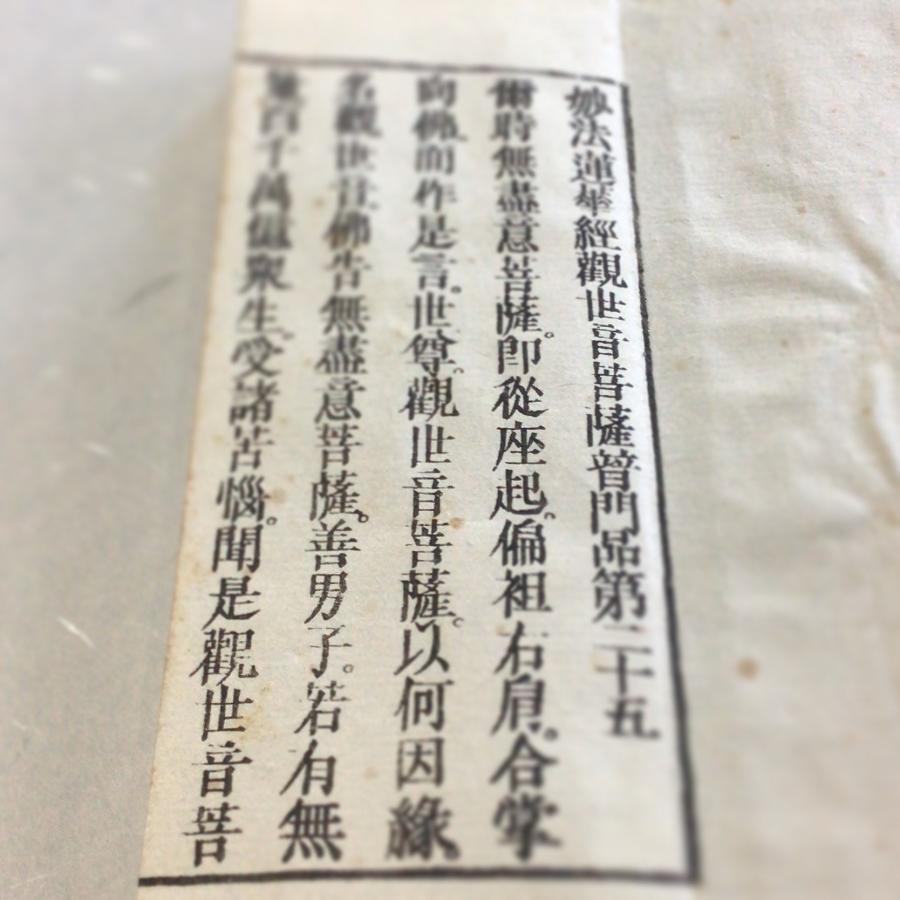 妙法蓮華經觀世音菩薩普門品第二十五
爾時無盡意菩薩。即從座起。偏袒右肩。合掌
向佛。而作是言。世尊。觀世音菩薩。以何因緣。
名觀世音佛告無盡意菩薩。善男子。若有無
量百千萬億衆生。受諸苦惱。聞是觀世音菩